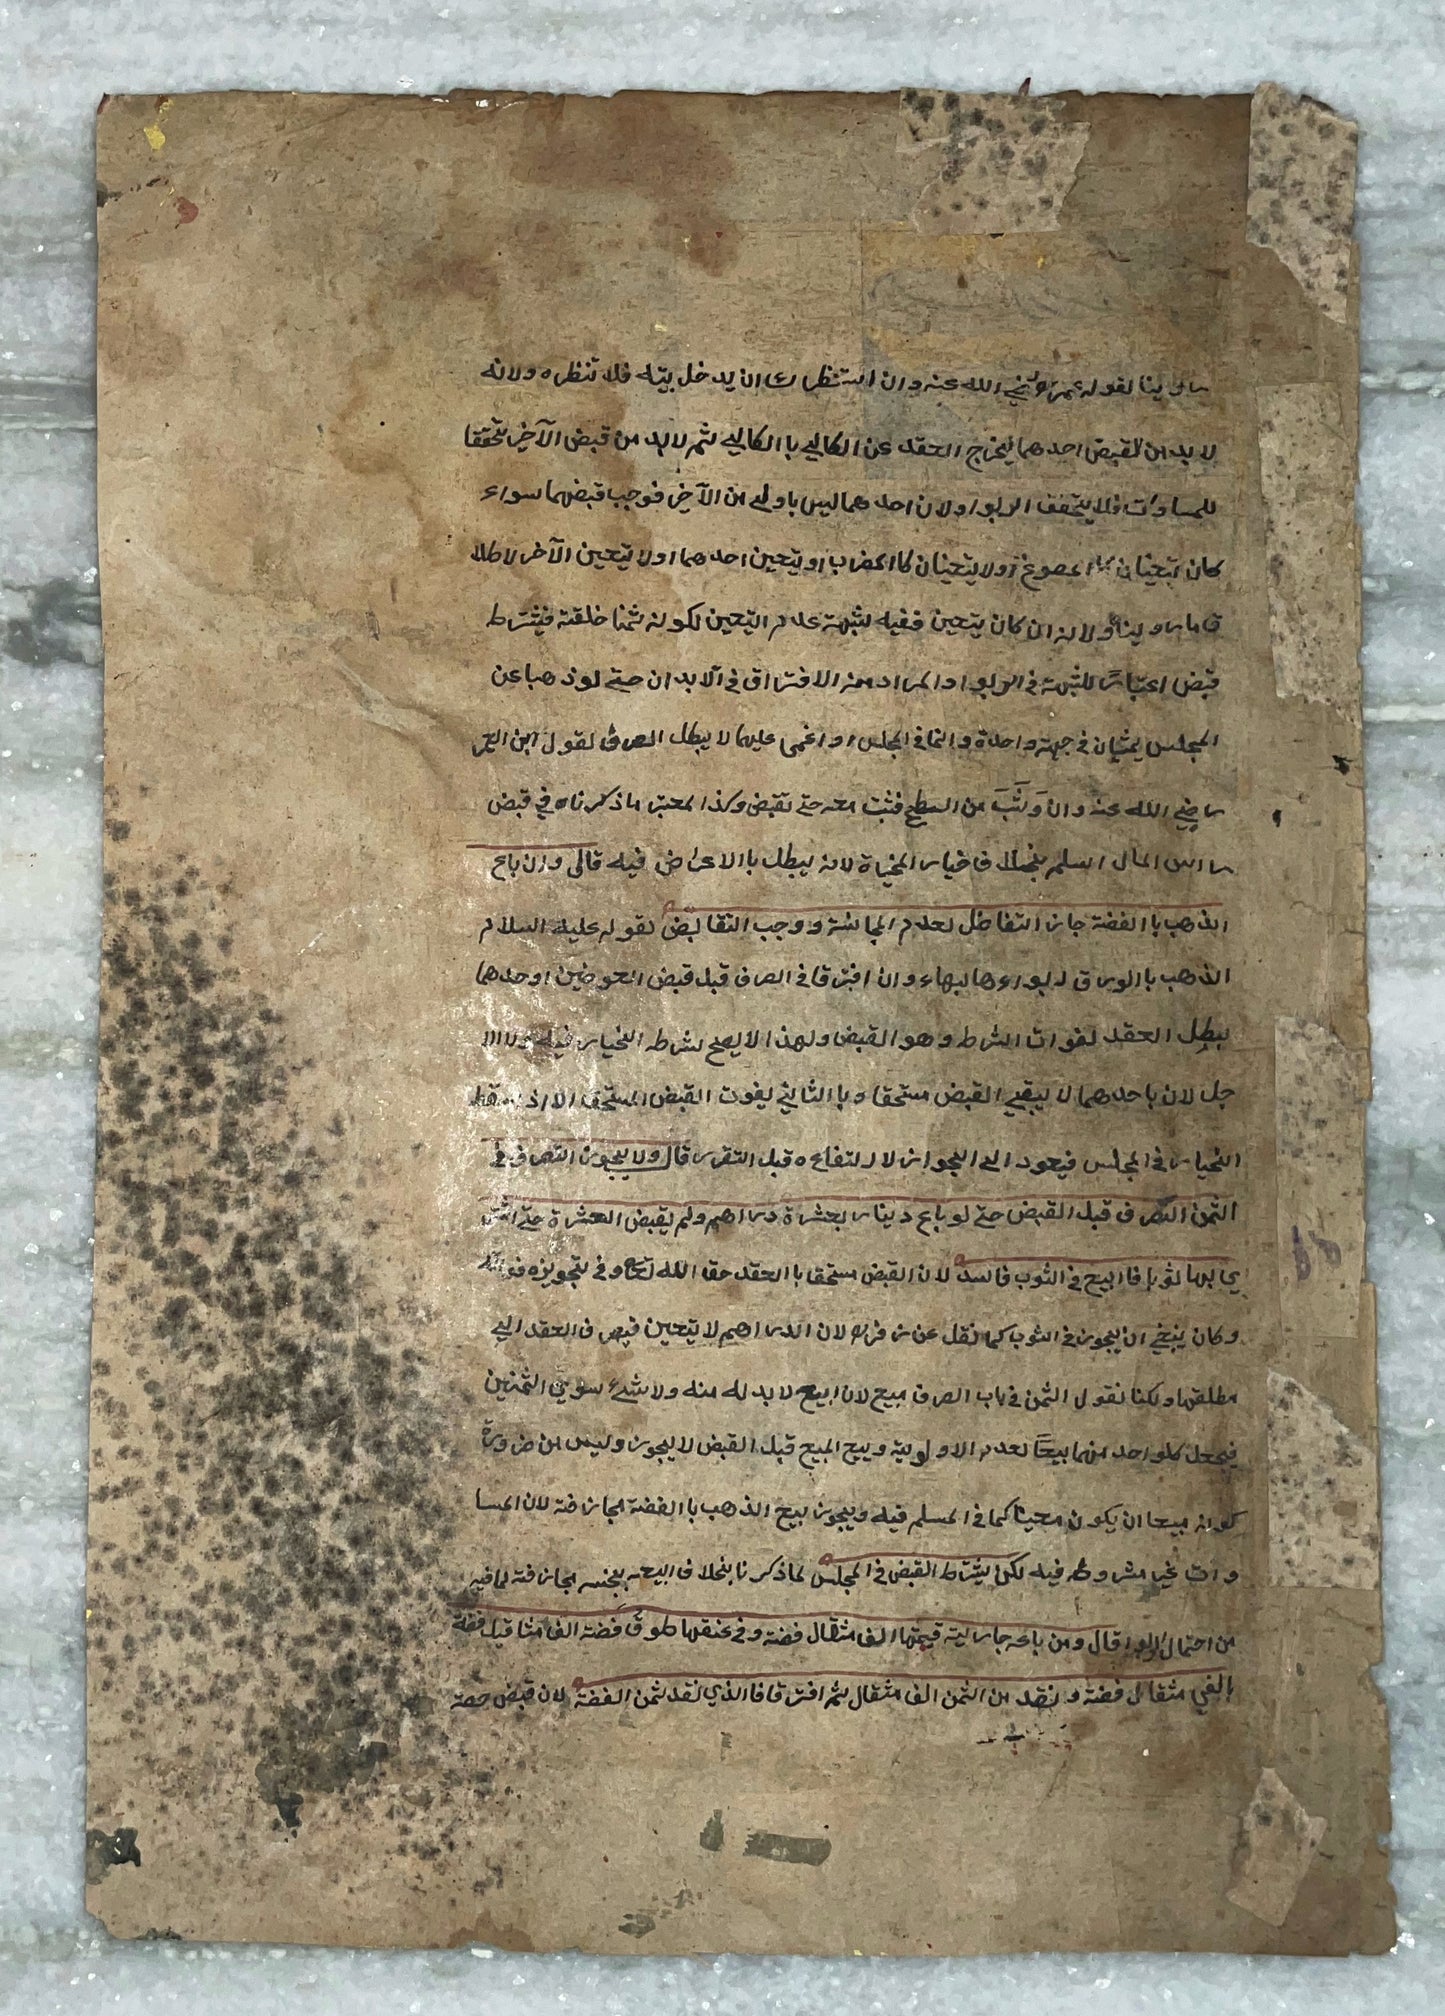 ما روينا لقوله عمر رضي الله عنه وان استنظرك ان يدخل بيته فلا تنظره ولانه
لا بد من قبض احدهما ليخرج العقد عن الكالي باالكالي ثم لا بد من قبض الآخر تحققا
للمساوات فلا يتحقق الربوا ولان احدهما ليس باولى من الآخر فوجب قبضهما سواء
كان يتعينان كاالمصوغ اولا يتعينان كاالمضراب او يتعين احدهما اولا يتعين الآخر لاطلا
ق ما روينا ولانه ان كان يتعين ففيه شبهة عدم التعين لكونه ثمنا خلقة فيشترط
قبض اعتبارًا للشبهة في الربوا والمراد منه الافتراق في الابدان حتى لو ذهبا عن
المجلس يمشيان في جهة واحدة و انما في المجلس او اغمى عليهما لا يبطل الصرف لقول ابن العمر
رضي الله عنه وان وَثَبَ من السطح فثبت معه حتى تقبض وكذا المعتبر ما ذكرناه في قبض
راس المال السلم بخلاف خيار المخياة لانه يبطل باالاعراض فيه قال وان باع
الذهب باالفضة جاز التفاضل لعدم المجانسة ووجب التقابض لقوله عليه السلام
الذهب باالورق ربوا ها لبهاء وان افترقا في الصرف قبل قبض العوضين او حدهما
يبطل العقد لفوات الشرط وهو القبض ولهذا لا يصح شرط الخيار فيه ولا الا
جل لان باحدهما لا يبقي القبض مستحقا و باالثاني يفوت القبض المستحق الا اذ اسقط
الخيار في المجلس فيعود الى الجواز لارتفاعه قبل التقرر قال ولا يجوز التصرف في
الثمن الصرف قبل القبض حتى لو باع دينار بعشرة دراهم ولم يقبض العشرة حتى اشتر
ي بها ثوبا فاالبيع في الثوب فاسد لان القبض مستحقا باالعقد حق الله تعا و في تجويزه فواته
وكان ينبغي ان يجوز في الثوب كما نقل عن زفر لان الدراهم لا يتعين فيصرف العقد الى
مطلقها ولكنا نقول الثمن في باب الصرف مبيع لان ابيع لا بد له منه ولا شيء سوي الثمنين
فيجعل كلواحد منهما بيعًا لعدم الاولوية وبيع المبيع قبل القبض لا يجوز وليس من ضرورة
كونه مبيعا ان يكون معينا كما في المسلم فيه ويجوز بيع الذهب باالفضة مجازفة لان المسا
وات غير مشروطه فيه لكن يشترط القبض في المجلس لما ذكرنا بخلاف ابيعه بجنسه مجازفة لما فيه
من احتمال الربوا قال ومن باع جارية قيمتها الف مثقال فضة وفي عنقها طوق فضة الف مثاقيل فضة
بالفي مثقال فضة و نقد من الثمن الف مثقال ثم افترقا فاالذي نقد ثمن الفضة لان قبض حصة